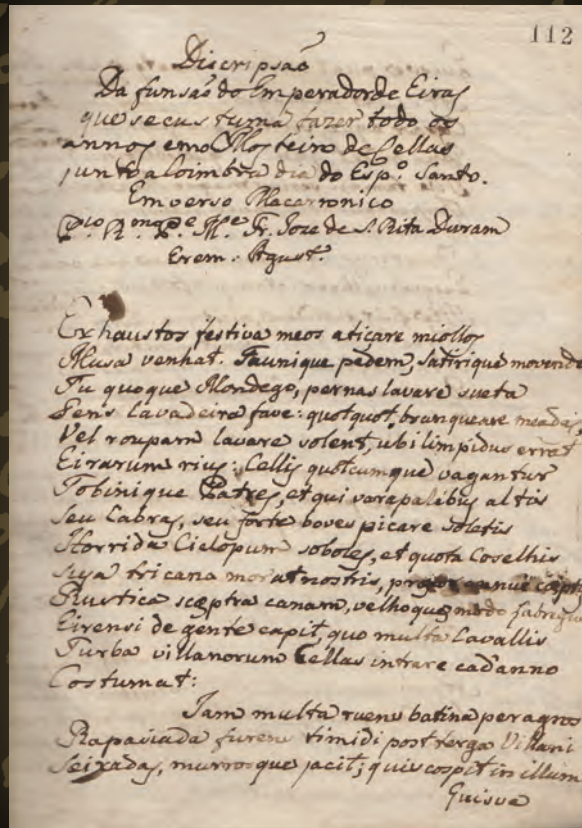 112
Discripsaõ
Da funsaõ do Emperador de Eiras
que se custuma fazer todo os
annos em o Mosteiro de Cellas
junto a Coimbra dia do Esp.º Santo.
Em verso Macarronico
P.lo R.mo P.e M.e Fr. Joze de S. Rita Duram
Erem. Agust.º
Exhaustos festiva meos aticare miollos
Musa venhat. Faunique pedem, Satirique movende
Tu quoque Mondego, pernas lavare sueta
Gens lavadeira fave: quotquot branqueare meadas,
Vel roupam lavare solent, ubi limpidus errat
Eirarum rius: Cellis quotcumque vagantur
Tobinique Patres, et qui varapalibus altis
Seu Cabras, seu forte boves picare soletis
Horrida Ciclopum soboles, et quota Coselhis
Sya tricana morat nostris,
Rustica scęptra canam, velhoque modo
Eirensi de gente capit, quo multa Cavallis
Turba villanorum Cellas intrare cad'anno
Costumat:
Iam multa ruens batina per agros
Rapaziada furens timidi post terga Villani
Seixadas, murrosque jacit; quis cospit in illum
Guisva